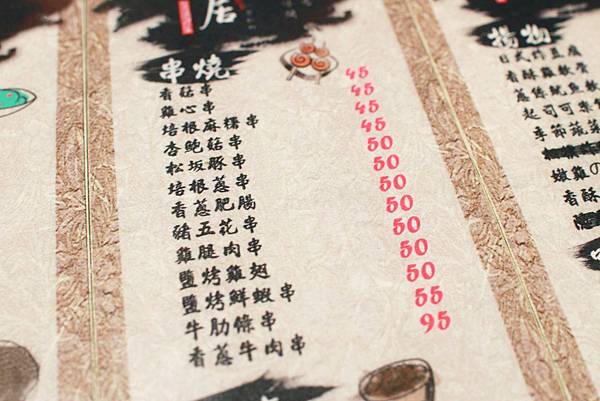 居
串燒
香菇串 45
雞心串 45
培根麻糬串 45
杏鮑菇串 45
松坂豚串 50
培根蔥串 50
香蔥肥腸 50
豬五花串 50
雞腿肉串 50
鹽烤雞翅 50
鹽烤鮮蝦串 50
牛肋條串 55
香蔥牛肉串 95
揚物
日式炸豆腐
香酥雞軟骨
起司可樂
季節蔬菜
嫩雞の
香酥